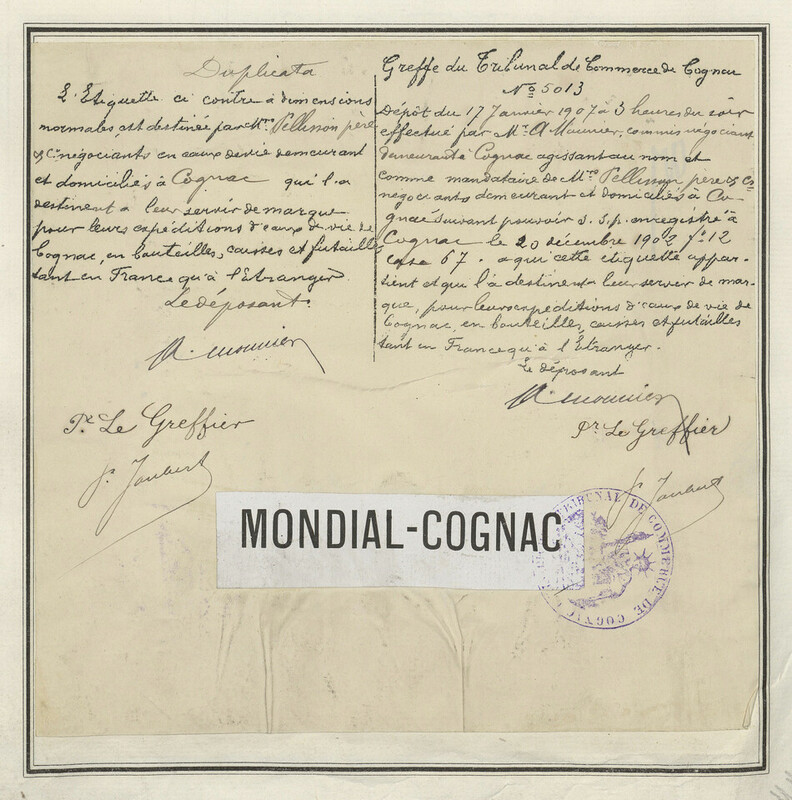 Duplicata
L'Etiquette ci contre à dimensions
normales est destinée par Mrs Pellisson père
& Cie négociants en eaux de vie demeurant
et domiciliés à Cognac qui l'a
destinent à leur servir de marque
pour leurs expéditions d'eaux de vie de
Cognac, en bouteilles, caisses et futailles
tant en France qu'à l'Etranger
Le déposant.
A. Mounier
Pr. Le Greffier
P. Joubert
Greffe du Tribunal de Commerce de Cognac
No 5013
Dépôt du 17 Janvier 1907 à 3 heures du soir
effectué par Mr. A Mounier, commis négociant
demeurant à Cognac agissant au nom et
comme mandataire de Mrs Pellisson père & Cie
négociants demeurant et domiciliés à Co-
gnac suivant pouvoir s.s.p. enregistré à
Cognac le 20 décembre 1902 fo 12
case 67. à qui cette étiquette appar-
tient et qui l'a destinent à leur servir de mar-
que, pour leurs expéditions d'eaux de vie de
Cognac, en bouteilles, caisses et futailles
tant en France qu'à l'Etranger.
Le déposant
A. Mounier
Pr. Le Greffier
P. Joubert
MONDIAL-COGNAC
TRIBUNAL DE COMMERCE DE COGNAC